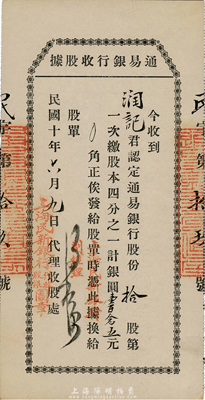 通易銀行收股據
今收到
潤記君認定通易銀行股份拾股第
一次繳股本四分之一計銀圓壹佰元
角正俟發給股單時憑此據換給
股單
民國十年六月九日代理收股處
民字第拾玖號
上海崇源拍賣